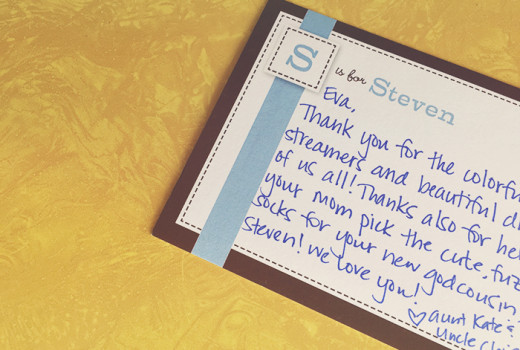 S
is for Steven
Eva,
Thank you for the colorful
streamers and beautiful
of us all! Thanks also for
your mom pick the cute,
socks for your new godcousin,
Steven! We love you!
♡ aunt Kate &
Uncle